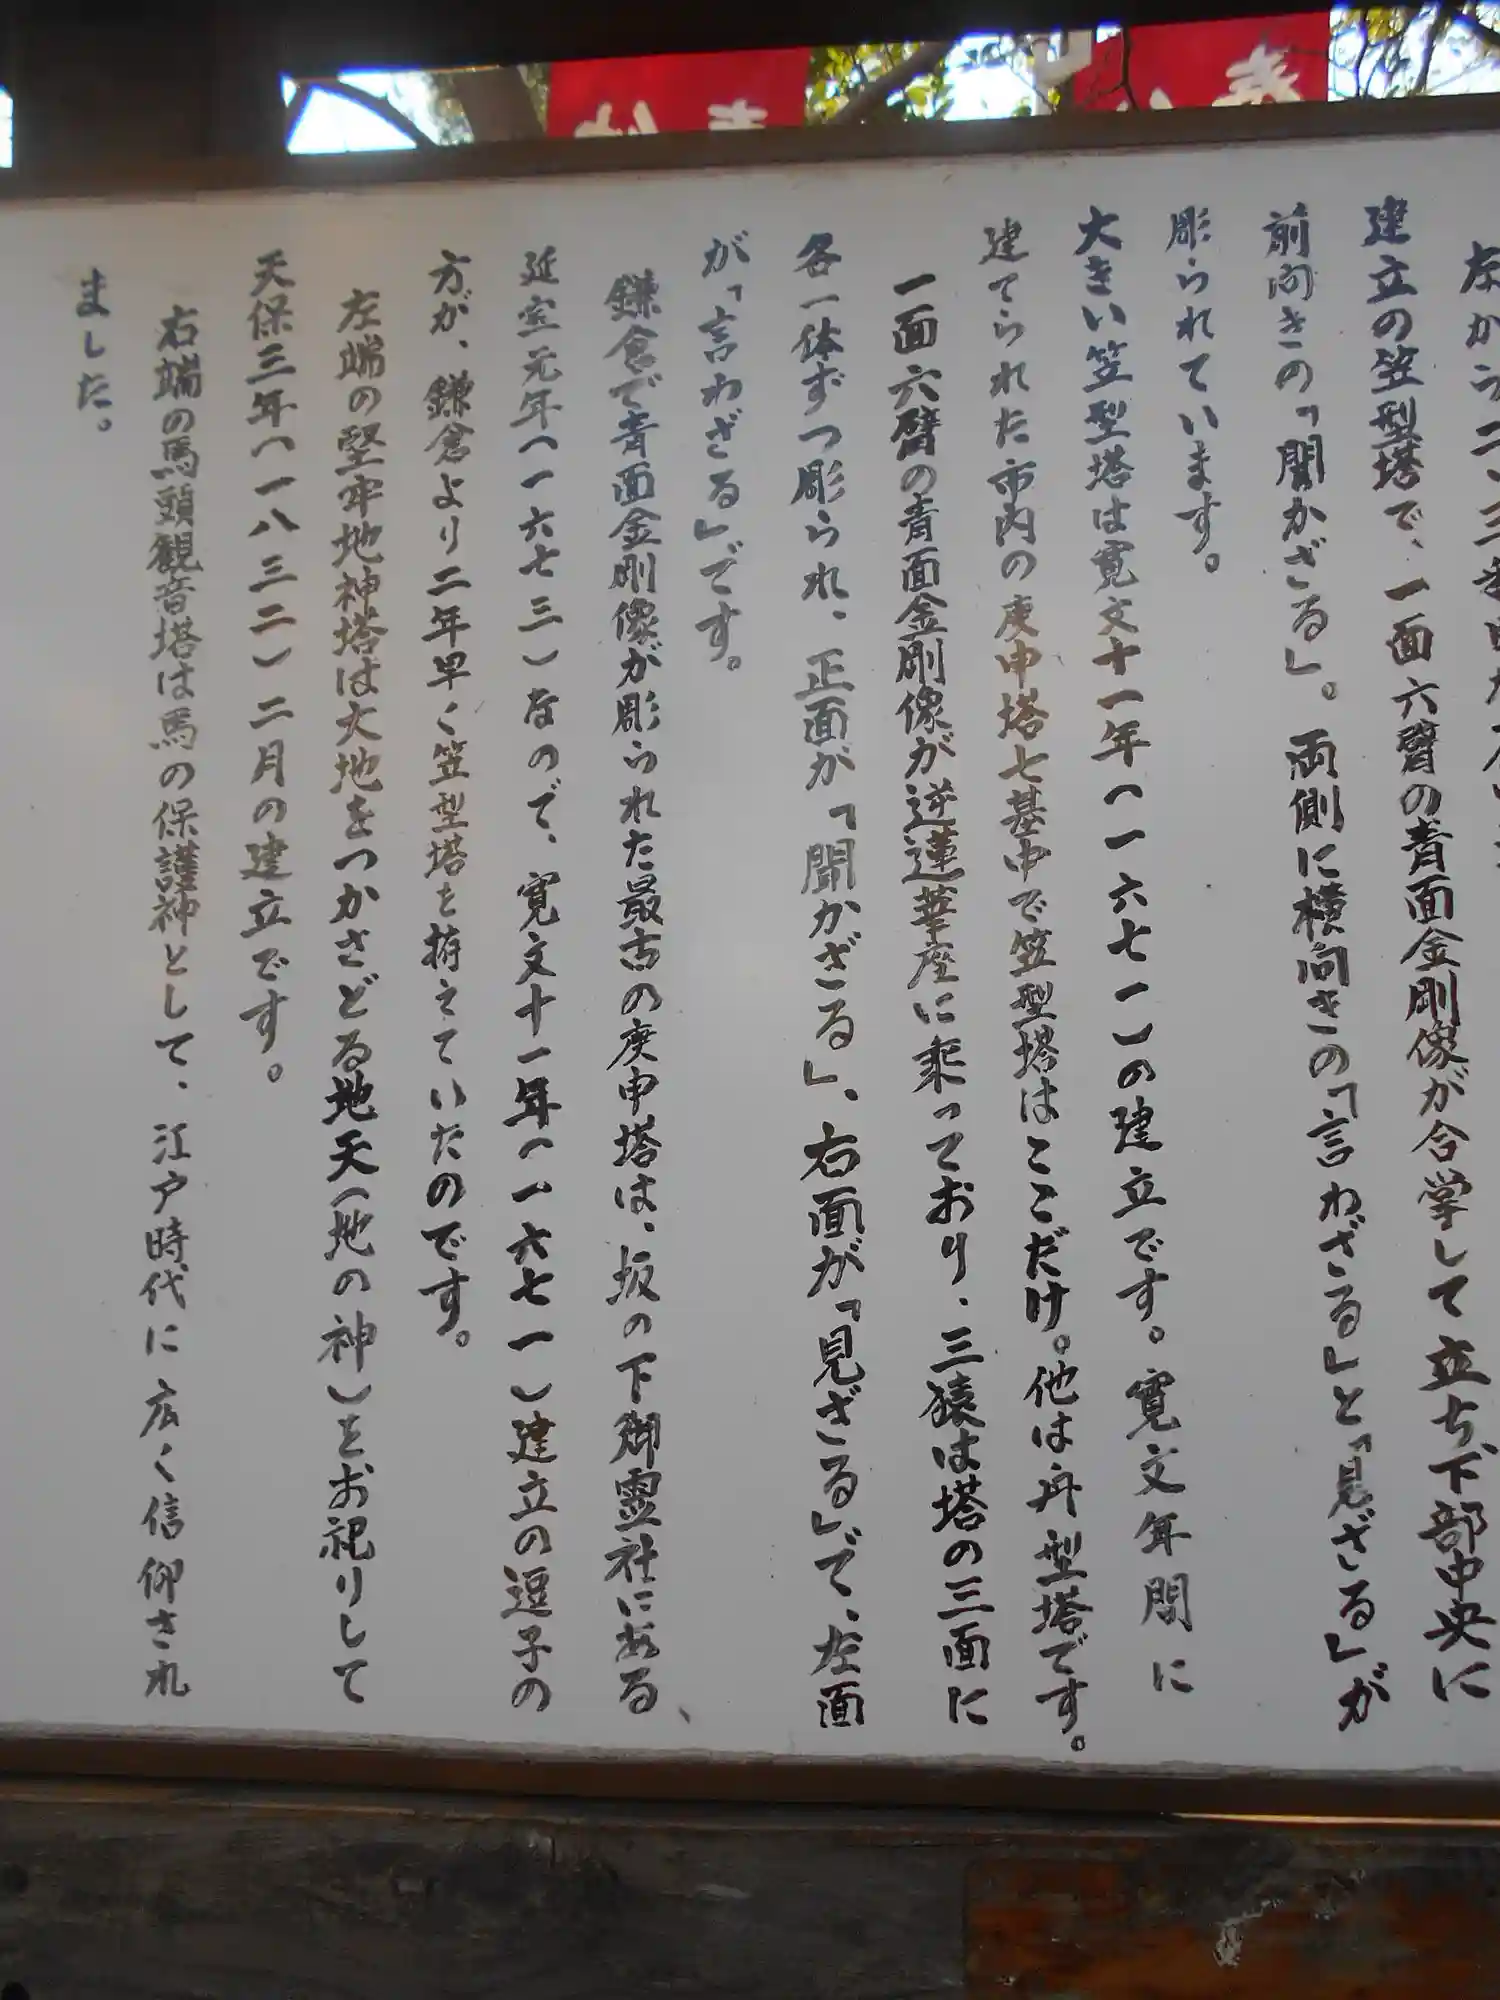 建立の笠型塔で、一面六臂の青面金剛像が合掌して立ち、下部中央に
前向きの「聞かざる」。両側に横向きの「言わざる」と「見ざる」が
彫られています。
大きい笠型塔は寛文十一年(一六七一)の建立です。寛文年間に
建てられた市内の庚申塔七基中で笠型塔はここだけ。他は舟型塔です。
一面六臂の青面金剛像が逆蓮華座に乗っており、三猿は塔の三面に
各一体ずつ彫られ、正面が「聞かざる」、右面が「見ざる」で、左面
が「言わざる」です。
鎌倉で青面金剛像が彫られた最古の庚申塔は、坂の下御霊社にある、
延宝元年(一六七三)なので、寛文十一年(一六七一)建立の逗子の
方が、鎌倉より二年早く笠型塔を持えていたのです。
左端の堅牢地神塔は大地をつかさどる地天(地の神)をお祀りして
天保三年(一八三二)二月の建立です。
右端の馬頭観音塔は馬の保護神として、江戸時代に広く信仰され
ました。